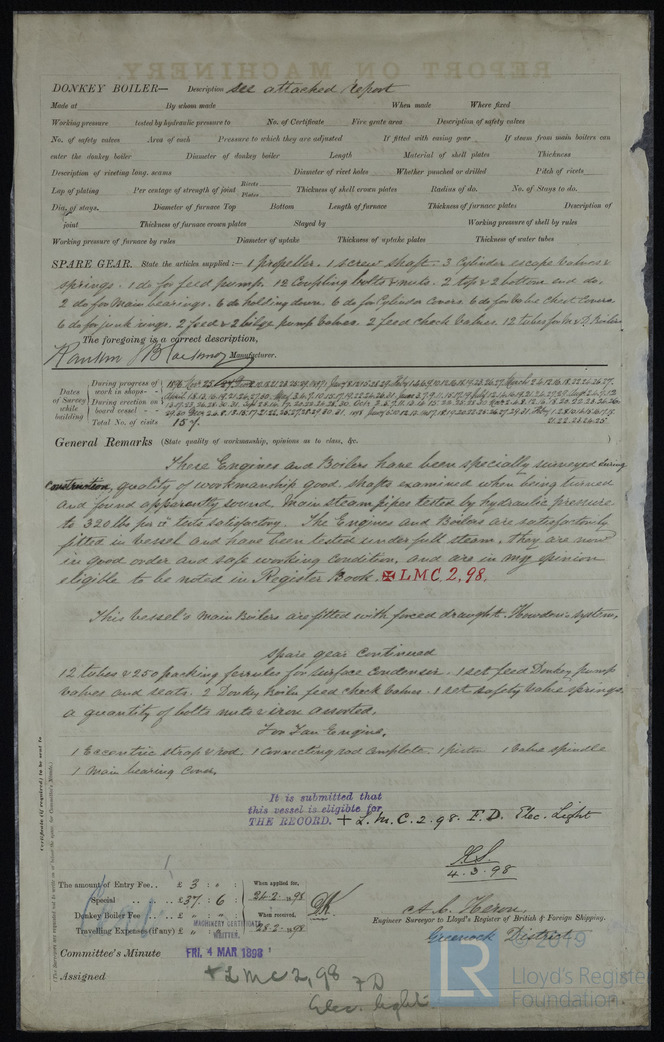 REPORT ON MACHINERY.
DONKEY BOILER— Description see attached report
Made at By whom made When made Where fixed
Working pressure tested by hydraulic pressure to No. of Certificate Fire grate area Description of safety valves
No. of safety valves Area of each Pressure to which they are adjusted If fitted with easing gear If steam from main boilers can
enter the donkey boiler Diameter of donkey boiler Length Material of shell plates Thickness
Description of riveting long. seams Diameter of rivet holes Whether punched or drilled Pitch of rivets
Lap of plating Per centage of strength of joint Rivets Plates Thickness of shell crown plates Radius of do. No. of Stays to do.
Dia. of stays. Diameter of furnace Top Bottom Length of furnace Thickness of furnace plates Description of
joint Thickness of furnace crown plates Stayed by Working pressure of shell by rules
Working pressure of furnace by rules Diameter of uptake Thickness of uptake plates Thickness of water tubes
SPARE GEAR. State the articles supplied:— 1 propeller. 1 screw shaft. 3 Cylinder escape valves &
springs. 1 do for feed pump. 12 Coupling bolts & nuts. 2 top & 2 bottom end do.
2 do for Main bearings. 6 do holding down. 6 do for Cylinder Covers 6 do for valve Chest Covers
6 do for junk rings. 2 feed & 2 bilge pump valves. 2 feed check valves. 12 tubes for M & D. Boilers
The foregoing is a correct description,
Rankin & Blackmore Manufacturer.
Dates of Survey while building
During progress of work in shops - -
During erection on board vessel - -
Total No. of visits 157.
General Remarks (State quality of workmanship, opinions as to class, &c. )
These Engines and Boilers have been specially surveyed during
construction, quality of workmanship good. shafts examined when being turned
and found apparently sound. Main steam pipes tested by hydraulic pressure
to 320 lbs per □" tests satisfactory. The Engines and Boilers are satisfactorily
fitted in vessel and have been tested under full steam. they are now
in good order and safe working condition, and are in my opinion
eligible to be noted in Register Book. ✠ LMC 2,98.
This vessel's main Boilers are fitted with forced draught. Howden's system.
Spare gear Continued
12 tubes & 250 packing ferrules for Surface Condenser. 1 set feed Donkey pump
valves and seats. 2 Donkey boiler feed check valves. 1 set safety valve springs.
a quantity of bolts nuts & iron assorted.
For Fan Engine.
1 Eccentric strap & rod. 1 Connecting rod complete. 1 piston 1 valve spindle
1 Main bearing Cover.
It is submitted that
this vessel is eligible for
THE RECORD. + L.M.C. 2.98. F.D. Elec. Light
4.3.98
Certificate (if required) to be sent to
(The Surveyors are requested not to write on or below the space for Committee's Minute.)
The amount of Entry Fee.. £ 3 : : When applied for,
Special £ 37 : 6 : 24.2.1898
Donkey Boiler Fee £ : : When received,
Travelling Expenses (if any) £ : : 28.2.1898
A. C. Heron.
Engineer Surveyor to Lloyd's Register of British & Foreign Shipping.
Greenock District
MACHINERY CERTIFICATE
WRITTEN.
Committee's Minute FRI. 4 MAR 1898
Assigned + LMC 2,98 FD
Elec. light
© 2019
LR
Lloyd's Register
Foundation